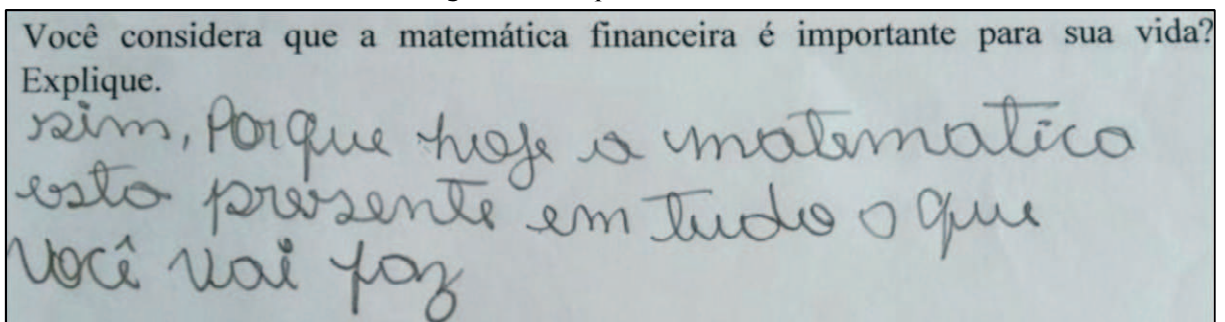 Você considera que a matemática financeira é importante para sua vida?
Explique.
sim, Porque hoje a matematica
esta presente em tudo o que
Você vai faz